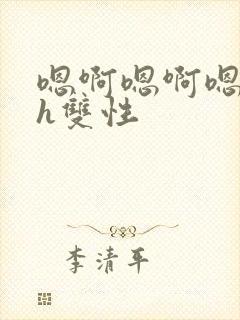 嗯啊嗯啊嗯
h雙性
李清平